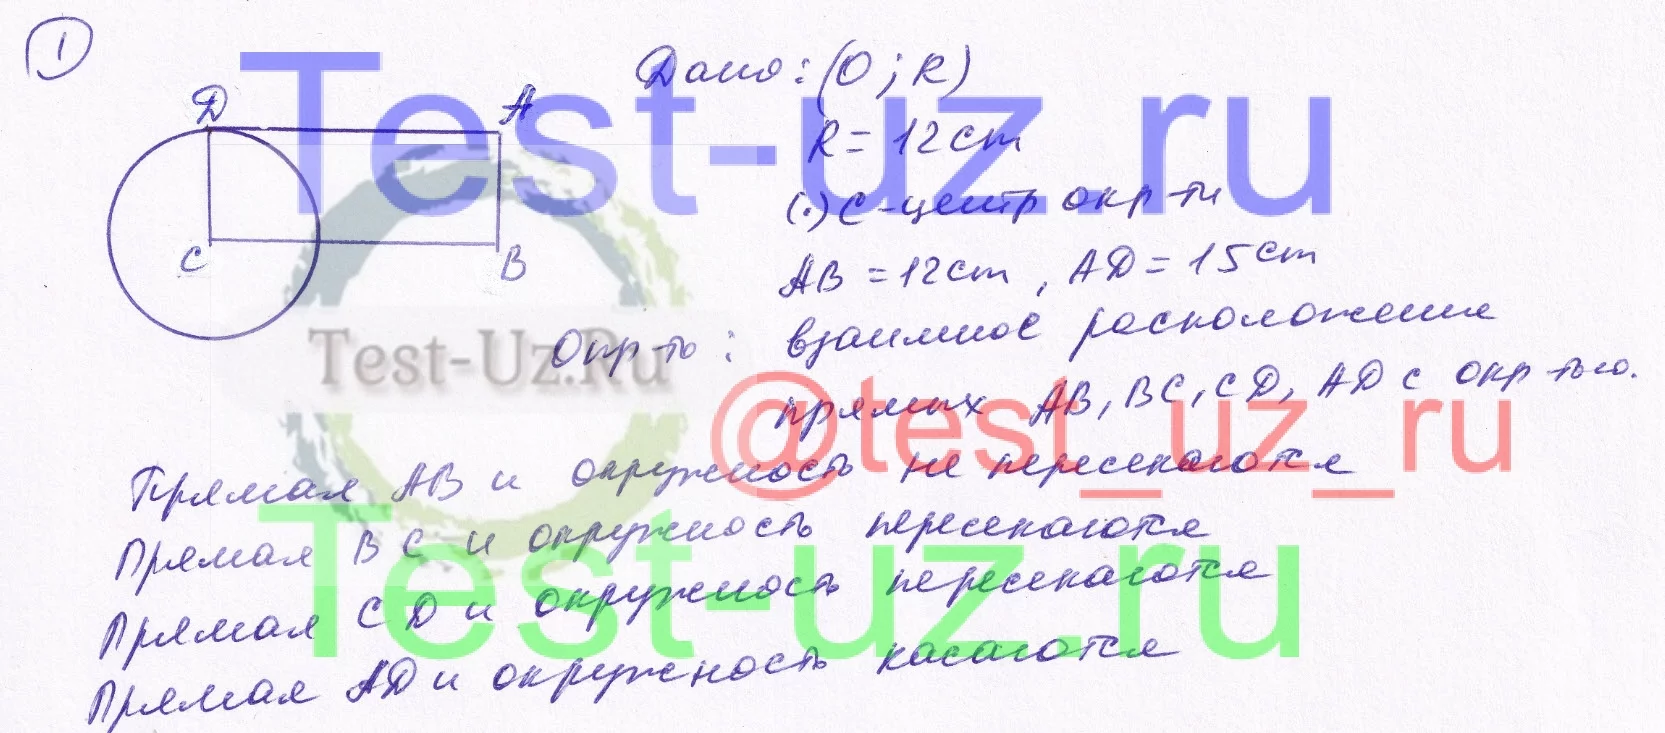 1
Дано: (O; R)
R = 12 cm
(·) C - центр окр-ти
AB = 12 cm, AD = 15 cm
Опр-ть: взаимное расположение
прямых AB, BC, CD, AD с окр-тью.
D A
C B
Прямая AB и окружность не пересекаются
Прямая BC и окружность пересекаются
Прямая CD и окружность пересекаются
Прямая AD и окружность касаются
Test-uz.ru
Test-Uz.Ru
@test_uz_ru
Test-uz.ru